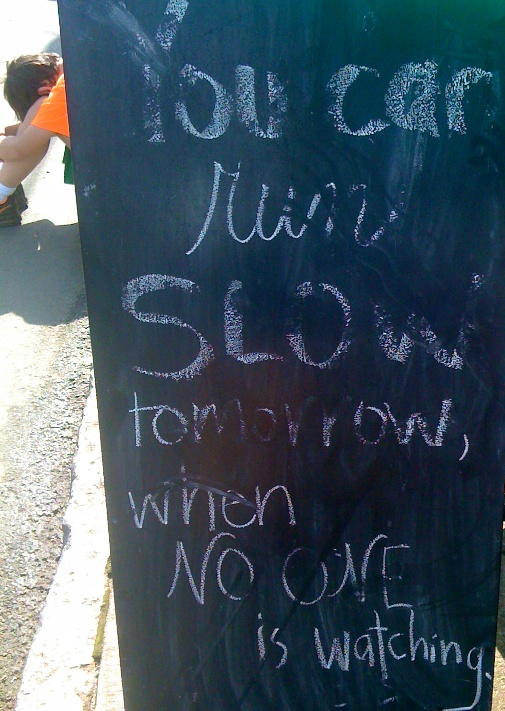 You can
run
SLOW
tomorrow,
when
NO ONE
is watching.